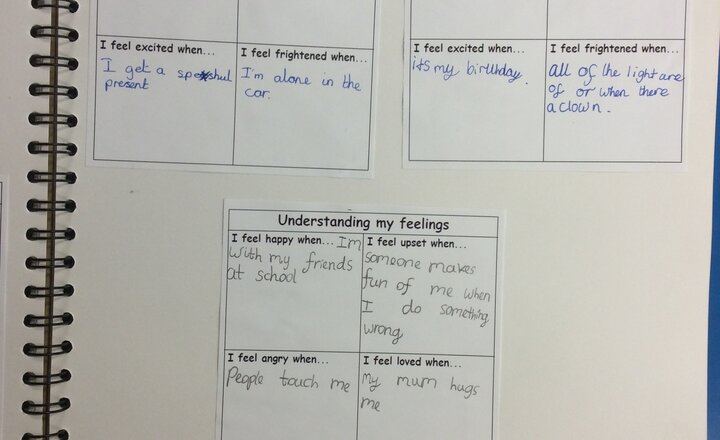 I feel excited when...
I get a speshul
present
I feel frightened when...
I'm alone in the
car.
I feel excited when...
its my birthday.
I feel frightened when...
all of the light are
of or when there
a clown.
Understanding my feelings
I feel happy when... Im
with my friends
at school
I feel upset when...
someone makes
fun of me when
I do something
wrong
I feel angry when...
People touch me
I feel loved when...
My mum hugs
me